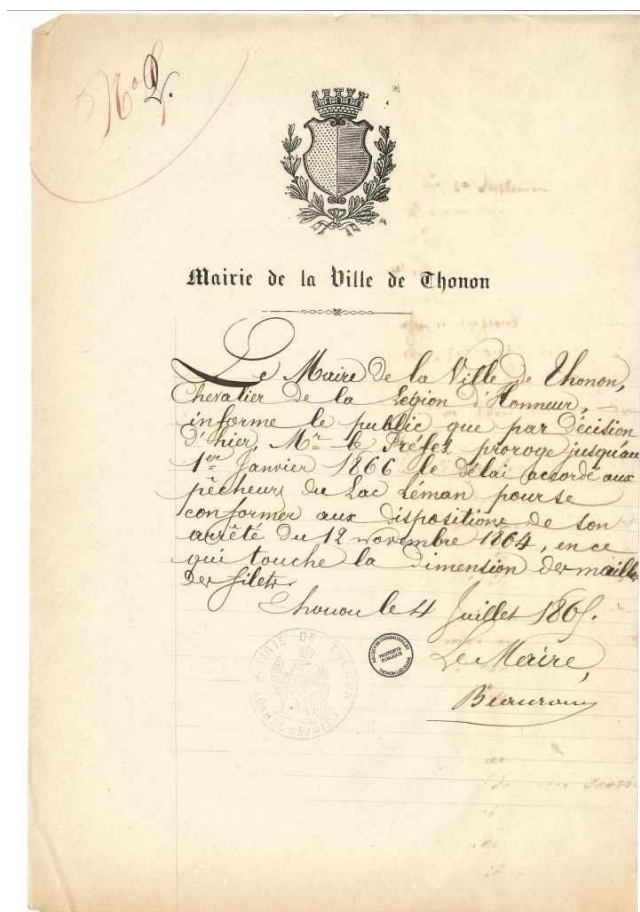 No 2.
Mairie de la Ville de Thonon
Le Maire de la Ville de Thonon,
Chevalier de la Légion d'Honneur,
informe le public que par décision
d'hier, Mr le Préfet proroge jusqu'au
1er Janvier 1866 le délai accordé aux
pêcheurs du Lac Léman pour se
conformer aux dispositions de son
arrêté du 12 novembre 1864, en ce
qui touche la dimension des mailles
des filets.
Thonon le 4 Juillet 1865.
Le Maire,